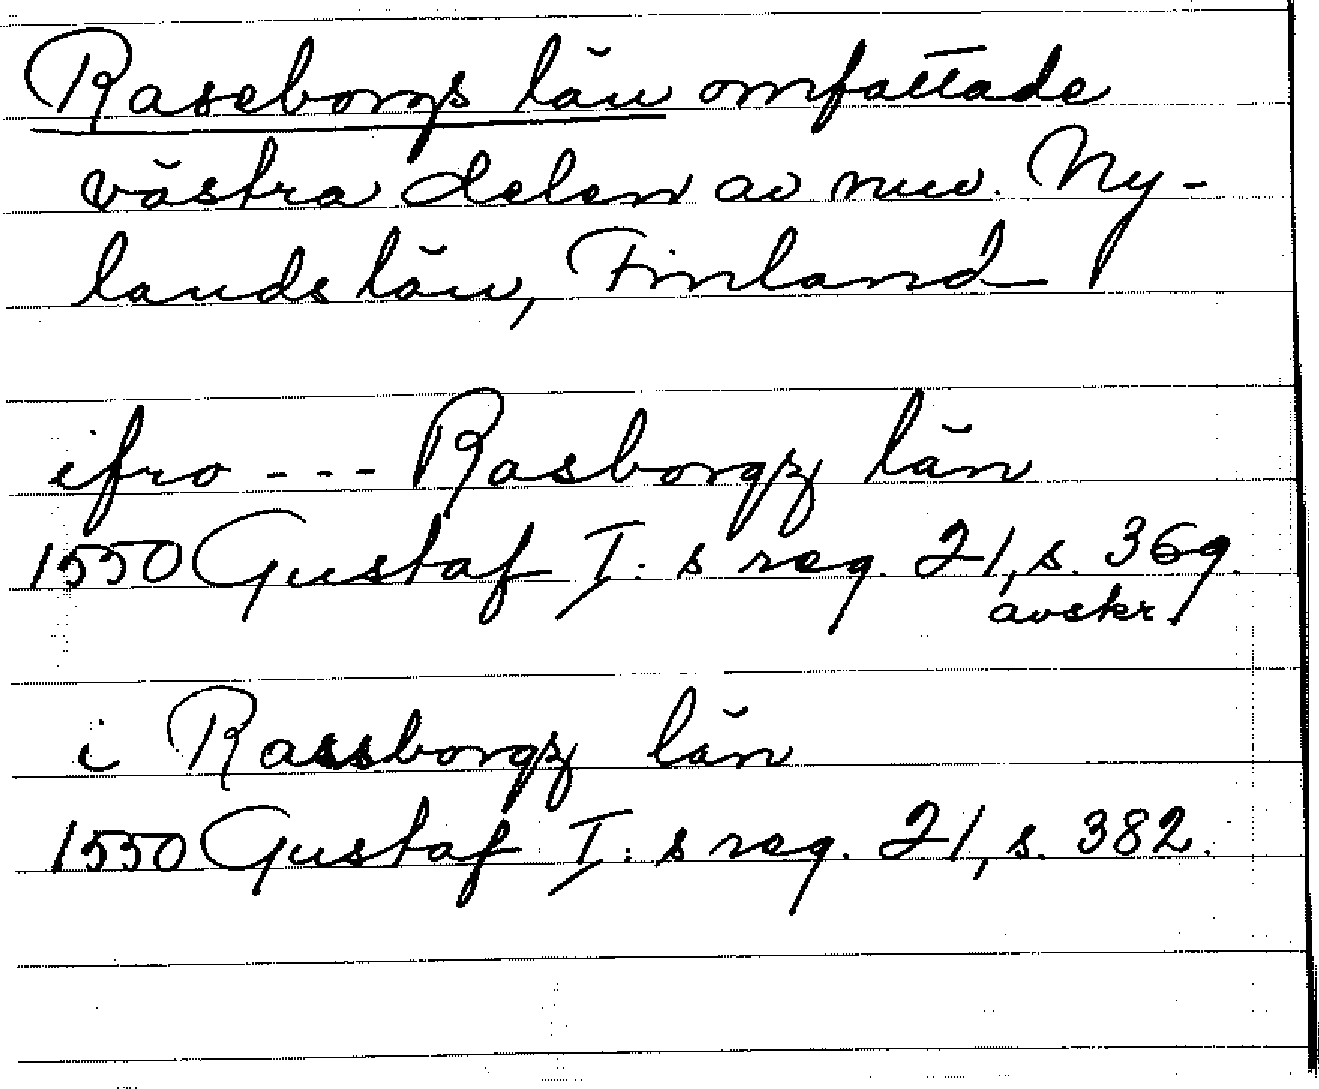 Raseborgs län omfattade
västra delen av nuv. Ny-
lands län, Finland
ifro --- Rasborgz län
1550 Gustaf I:s reg. 21, s. 369.
avskr.
i Rassborgz län
1550 Gustaf I:s reg. 21, s. 382.